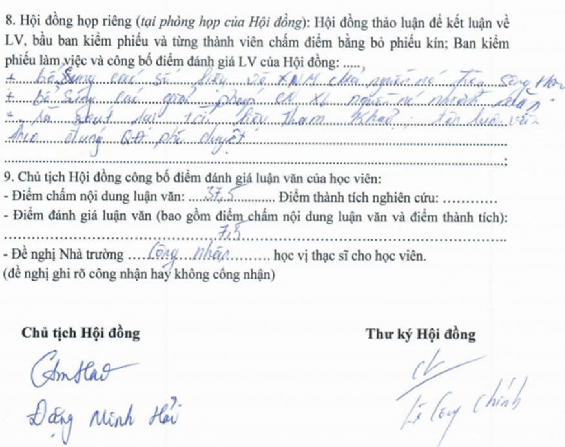 8. Hội đồng họp riêng (tại phòng họp của Hội đồng): Hội đồng thảo luận để kết luận về
LV, bầu ban kiểm phiếu và từng thành viên chấm điểm bằng bỏ phiếu kín; Ban kiểm
phiếu làm việc và công bố điểm đánh giá LV của Hội đồng: .....
+ bổ sung các số liệu về
+ bổ sung các giải pháp
+ rà soát lại tài liệu tham khảo; tên luận văn
theo đúng QĐ phê duyệt
9. Chủ tịch Hội đồng công bố điểm đánh giá luận văn của học viên:
- Điểm chấm nội dung luận văn: ....37,5.... Điểm thành tích nghiên cứu: .............
- Điểm đánh giá luận văn (bao gồm điểm chấm nội dung luận văn và điểm thành tích):
7,5
- Đề nghị Nhà trường ....Công nhận.... học vị thạc sĩ cho học viên.
(đề nghị ghi rõ công nhận hay không công nhận)
Chủ tịch Hội đồng Thư ký Hội đồng
Đặng Minh Hải Chính